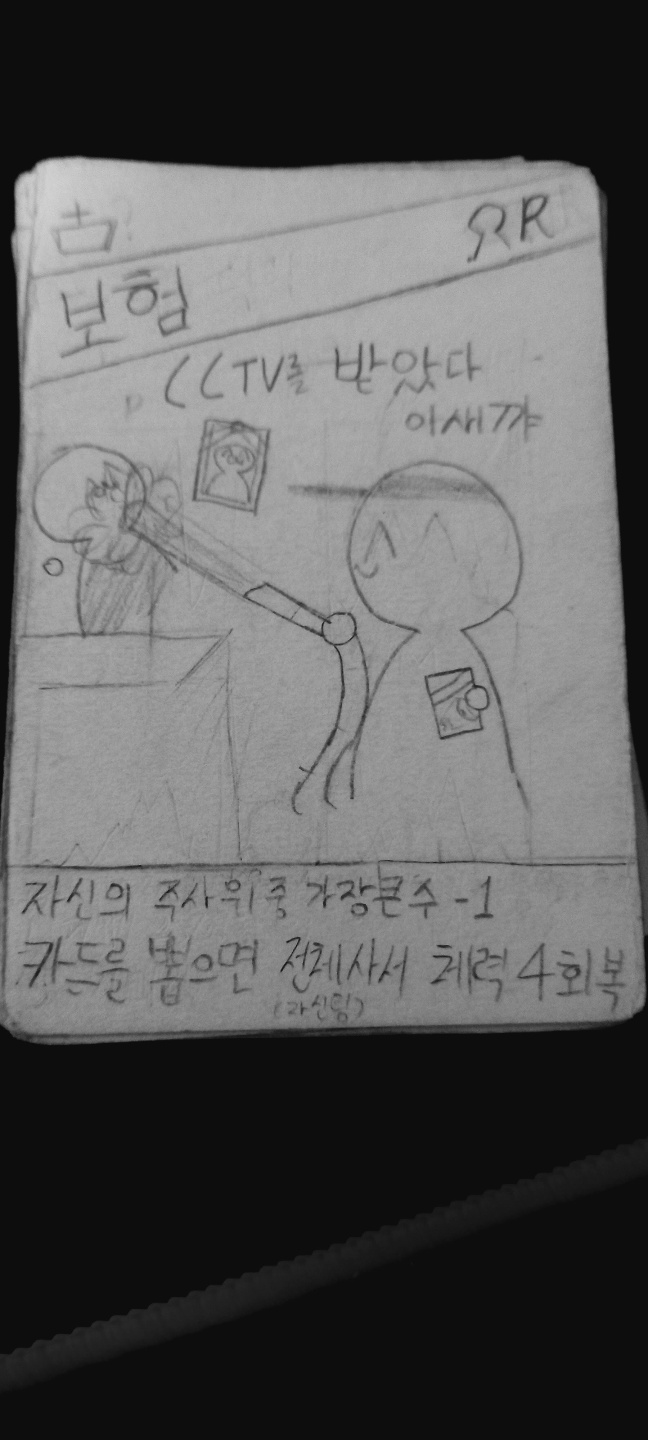 RR
보험
CCTV를 받았다
이새꺄
자신의 주사위중 가장큰수 -1
카드를 뽑으면 전체사서 체력 4회복
(자신팀)